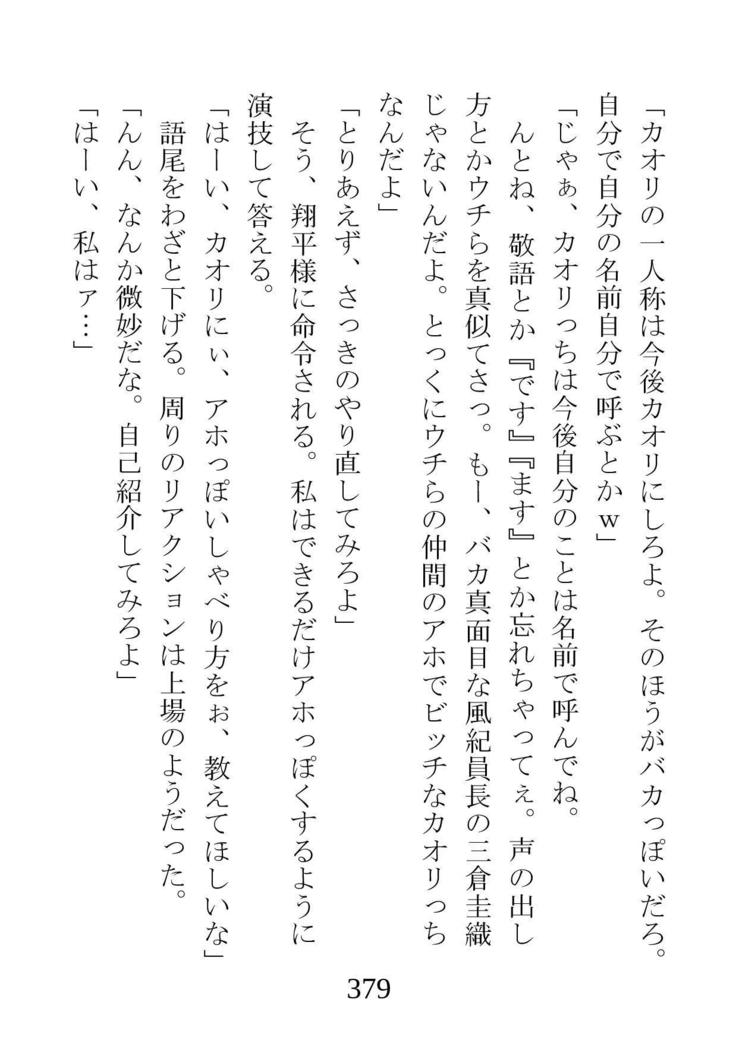 「カオリの一人称は今後カオリにしろよ。そのほうがバカっぽいだろ。
自分で自分の名前自分で呼ぶとかｗ」
「じゃぁ、カオリっちは今後自分のことは名前で呼んでね。
　んとね、敬語とか『です』『ます』とか忘れちゃってぇ。声の出し
方とかウチらを真似てさっ。もー、バカ真面目な風紀員長の三倉圭織
じゃないんだよ。とっくにウチらの仲間のアホでビッチなカオリっち
なんだよ」
「とりあえず、さっきのやり直してみろよ」
　そう、翔平様に命令される。私はできるだけアホっぽくするように
演技して答える。
「はーい、カオリにぃ、アホっぽいしゃべり方をぉ、教えてほしいな」
　語尾をわざと下げる。周りのリアクションは上場のようだった。
「んん、なんか微妙だな。自己紹介してみろよ」
「はーい、私はァ…」
379